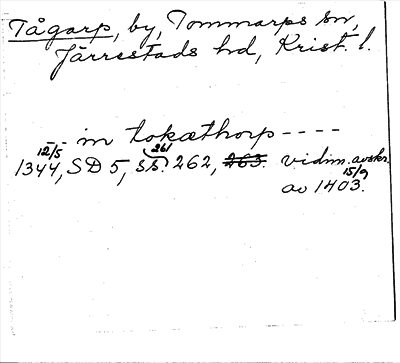 Tågarp, by, Tommarps sn,
Järrestads hd, Krist. l.
in tokæthorp ----
12/5 261
1344, SD 5, ss. 262, 263. vidim. avskr.
15/9
av 1403.